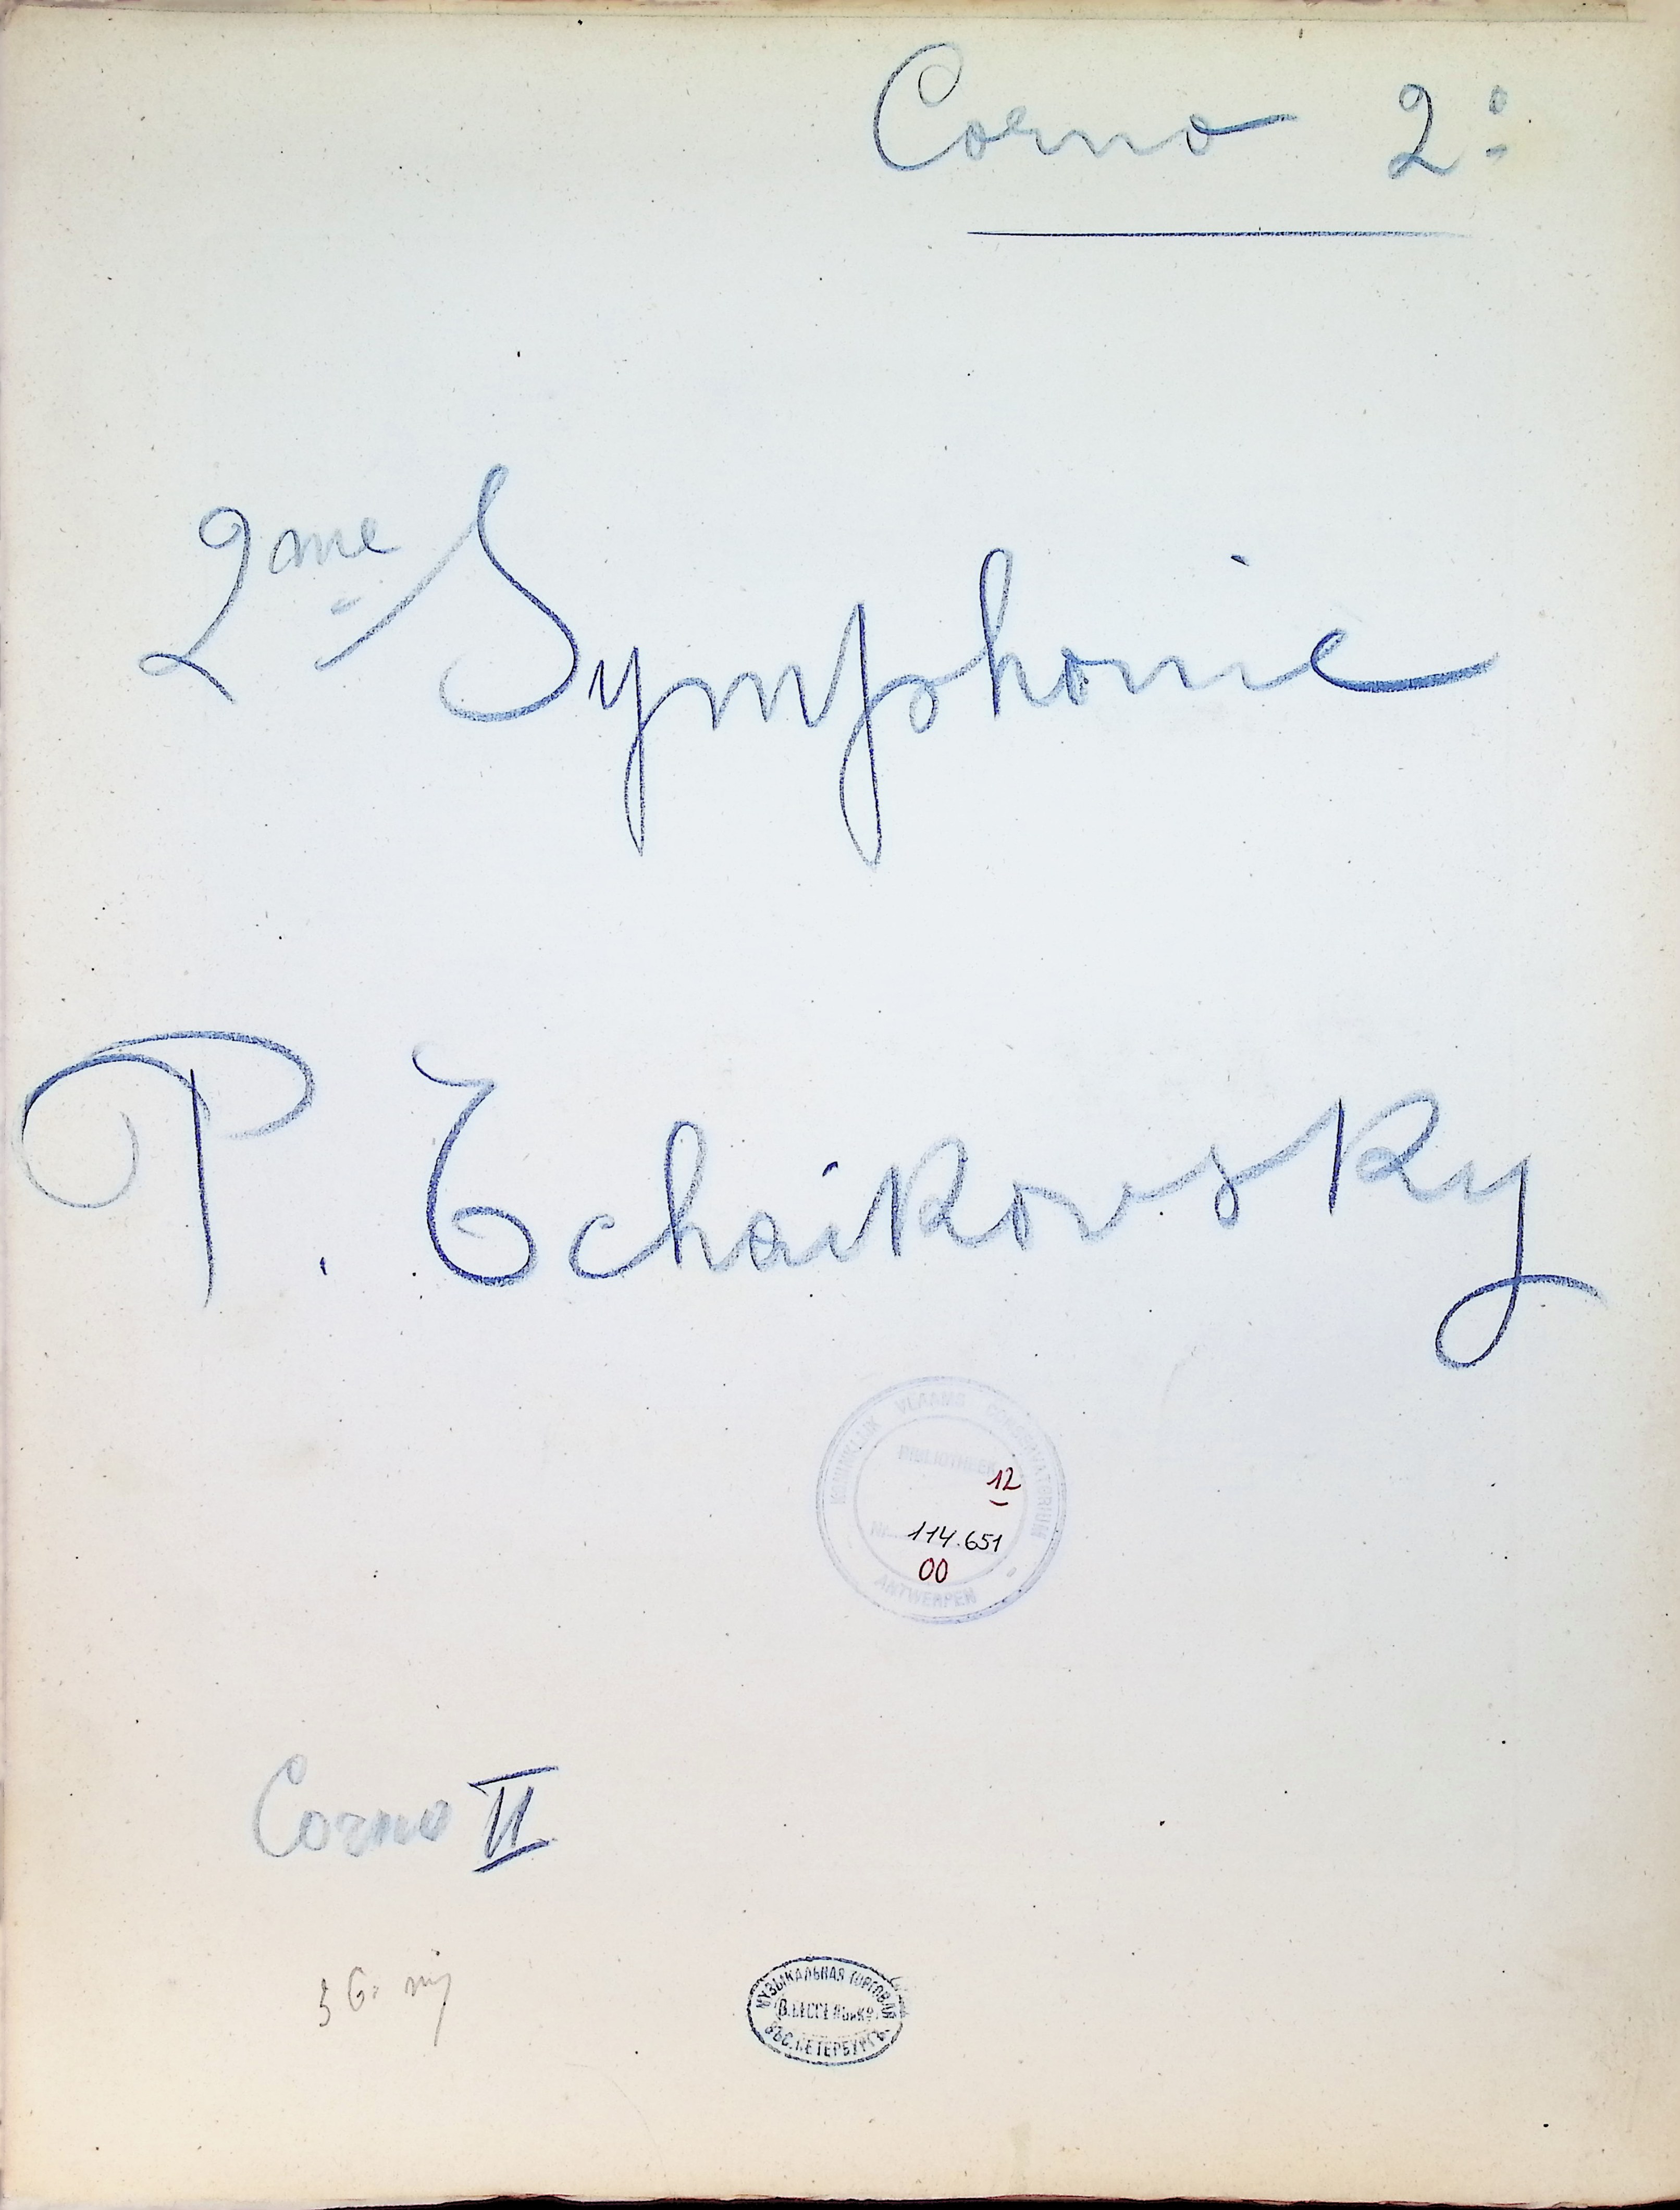 Corno 2º
2me Symphonie
P. Tchaikovsky
KONINKLIJK VLAAMS CONSERVATORIUM
BIBLIOTHEEK
12
Nr. 114.651
00
ANTWERPEN
Corno II
МУЗЫКАЛЬНАЯ ТОРГОВЛЯ
В. БЕССЕЛЬ и Кº
ВЪ С. ПЕТЕРБУРГѢ